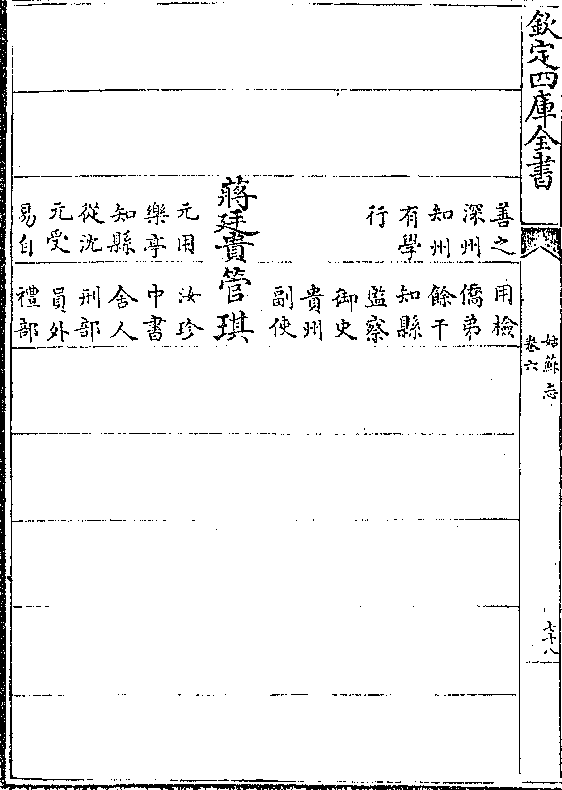 欽定四庫全書
姑蘇志
卷六
七十八
善之
深州
知州
有學
行
用檢
僑弟
餘干
知縣
監察
御史
貴州
副使
蔣廷貴
元用
樂亭
知縣
從沈
元受
易自
管琪
汝珍
中書
舍人
刑部
員外
禮部